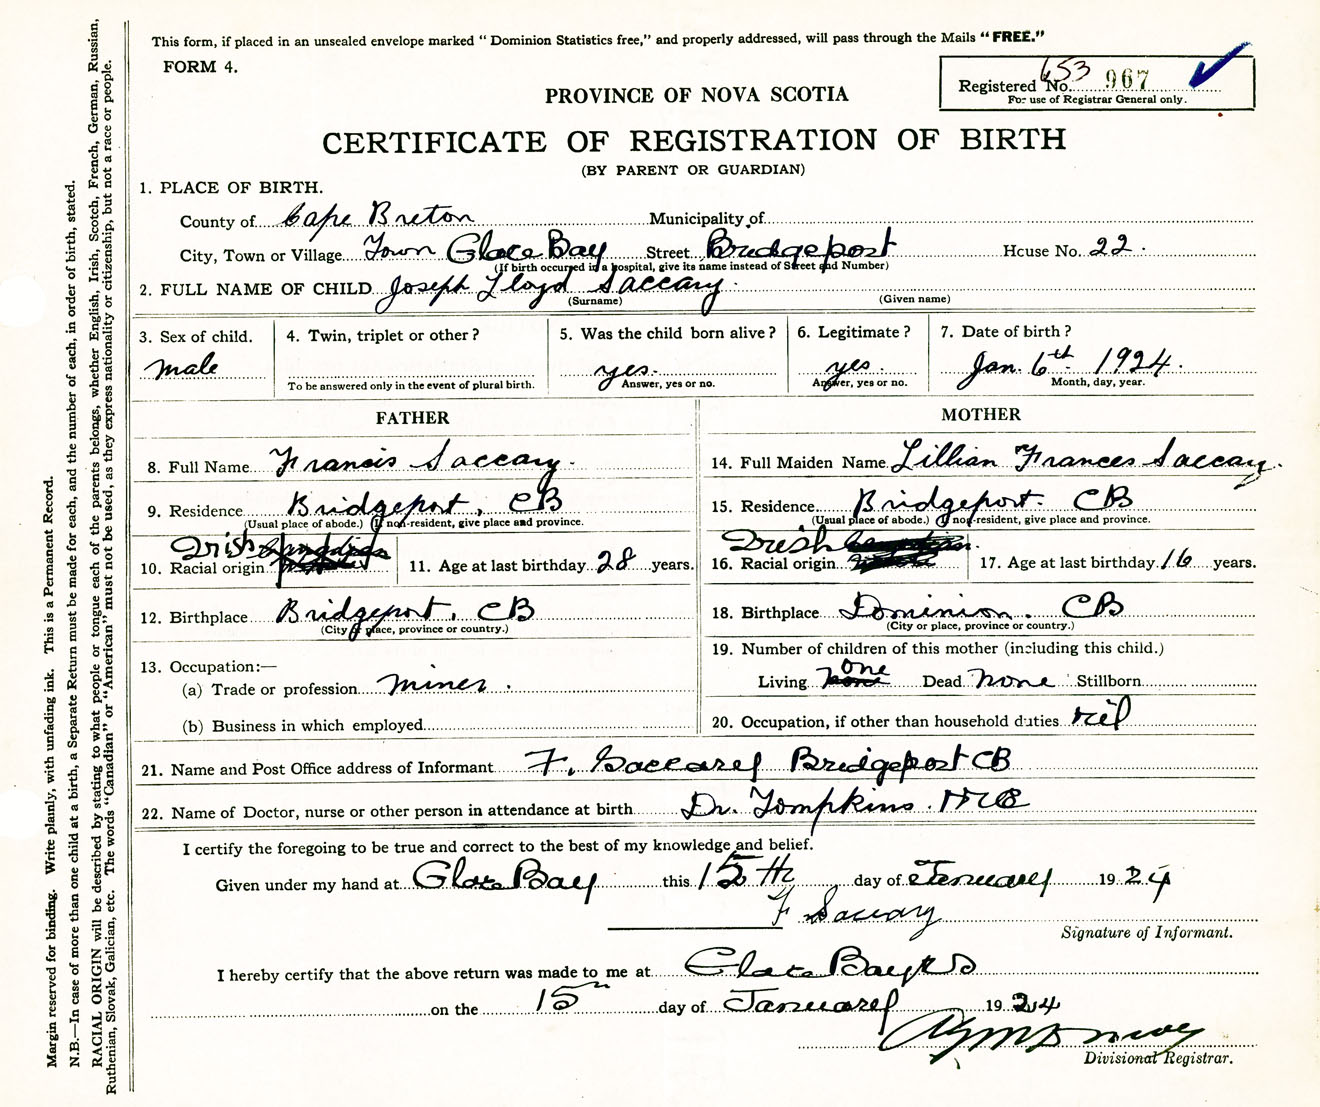 This form, if placed in an unsealed envelope marked “ Dominion Statistics free,” and properly addressed, will pass through the Mails “ FREE.”
FORM 4.
Registered No. 653 967
For use of Registrar General only.
PROVINCE OF NOVA SCOTIA
CERTIFICATE OF REGISTRATION OF BIRTH
(BY PARENT OR GUARDIAN)
1. PLACE OF BIRTH.
County of Cape Breton Municipality of
City, Town or Village Town Glace Bay Street Bridgeport House No. 22.
(If birth occurred in a hospital, give its name instead of Street and Number)
2. FULL NAME OF CHILD Joseph Lloyd Saccary.
(Surname) (Given name)
3. Sex of child. 4. Twin, triplet or other ? 5. Was the child born alive ? 6. Legitimate ? 7. Date of birth ?
male yes. yes. Jan. 6th 1924.
To be answered only in the event of plural birth. Answer, yes or no. Answer, yes or no. Month, day, year.
FATHER MOTHER
8. Full Name Francis Saccary. 14. Full Maiden Name Lillian Frances Saccary.
9. Residence Bridgeport, CB 15. Residence Bridgeport. CB
(Usual place of abode.) (If non-resident, give place and province. (Usual place of abode.) (If non-resident, give place and province.
10. Racial origin Irish 11. Age at last birthday 28 years. 16. Racial origin Irish 17. Age at last birthday 16 years.
12. Birthplace Bridgeport, CB 18. Birthplace Dominion. CB
(City or place, province or country.) (City or place, province or country.)
13. Occupation:— 19. Number of children of this mother (including this child.)
(a) Trade or profession miner. Living none one Dead none Stillborn
(b) Business in which employed 20. Occupation, if other than household duties nil
21. Name and Post Office address of Informant F. Saccary Bridgeport CB
22. Name of Doctor, nurse or other person in attendance at birth Dr. Tompkins.
I certify the foregoing to be true and correct to the best of my knowledge and belief.
Given under my hand at Glace Bay this 15th day of January 1924
F Saccary
Signature of Informant.
I hereby certify that the above return was made to me at Glace Bay NS
on the 15th day of January 1924
Divisional Registrar.
Margin reserved for binding. Write plainly, with unfading ink. This is a Permanent Record.
N.B.—In case of more than one child at a birth, a Separate Return must be made for each, and the number of each, in order of birth, stated.
RACIAL ORIGIN will be described by stating to what people or tongue each of the parents belongs, whether English, Irish, Scotch, French, German, Russian,
Ruthenian, Slovak, Galician, etc. The words “Canadian” or “American” must not be used, as they express nationality or citizenship, but not a race or people.